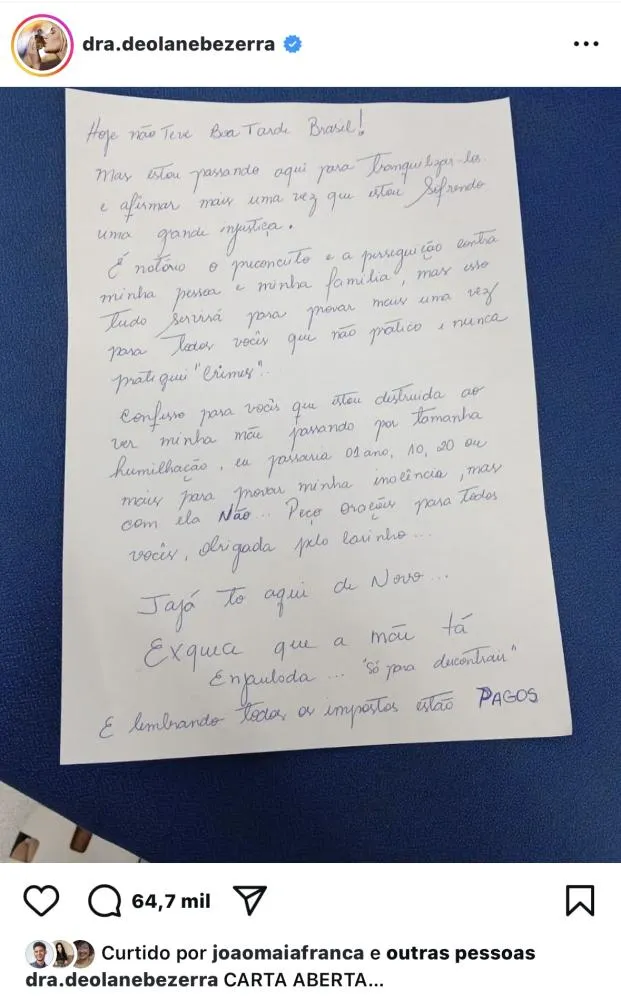 dra.deolanebezerra
Hoje não Teve Boa Tarde Brasil!
Mas estou passando aqui para tranquilizar-los
e afirmar mais uma vez que estou Sofrendo
uma grande injustiça.
É notório o preconceito e a perseguição contra
minha pessoa e minha família, mas isso
tudo servirá para provar mais uma vez
para todos vocês que não pratico e nunca
pratiquei "Crimes".
Confesso para vocês que estou destruída ao
ver minha mãe passando por tamanha
humilhação, eu passaria 01 ano, 10, 20 ou
mais para provar minha inocência, mas
com ela Não... Peço orações para todos
vocês, obrigada pelo carinho...
Jajá to aqui de Novo...
Exquece que a mãe tá
Enjaulada... "Só para descontrair"
E lembrando todos os impostos estão PAGOS
64,7 mil
Curtido por joaomaiafranca e outras pessoas
dra.deolanebezerra CARTA ABERTA...